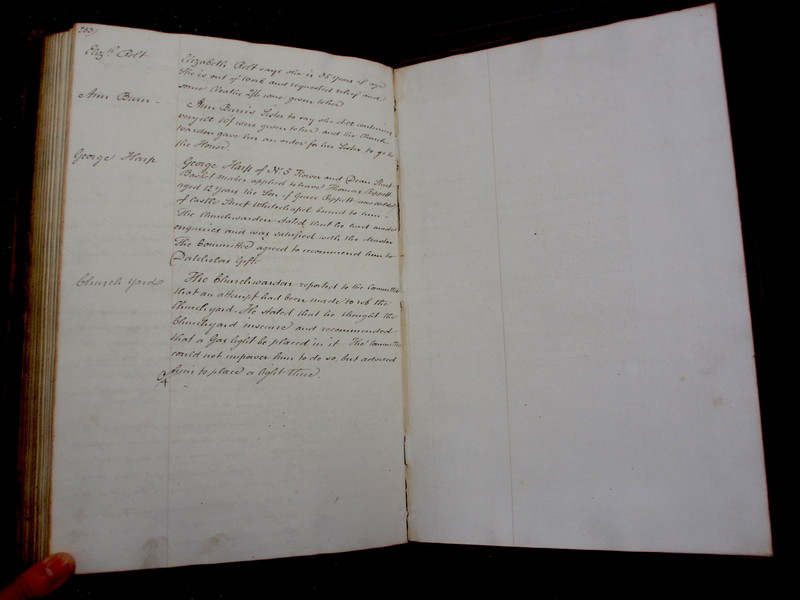 Eliz.th Bolt
Elizabeth Bolt says she is 35 years of age
She is out of Work and requested relief and
some Cloaths 2/6 was given to her
Ann Burn -
Ann Burn's Sister to say she still continues
very ill 10/ were given to her and the Church
warden gave her an order for her Sister to go to
the House
George Harp
George Harp of N. 5 Flower and Dean Street
Basket Maker applied to have Thomas
aged 12 Years the Son of Grace
of Castle Street Whitechapel bound to him -
The Churchwarden stated that he had made
enquiries and was satisfied with the Master
The Committee agreed to recommend him to
Gift
Church Yard
The Churchwarden reported to the Committee
that an attempt had been made to rob the
Churchyard. He stated that he thought the
Churchyard insecure and recommended
that a Gas light be placed in it The Committee
could not impower him to do so, but advised
him to place a light there.